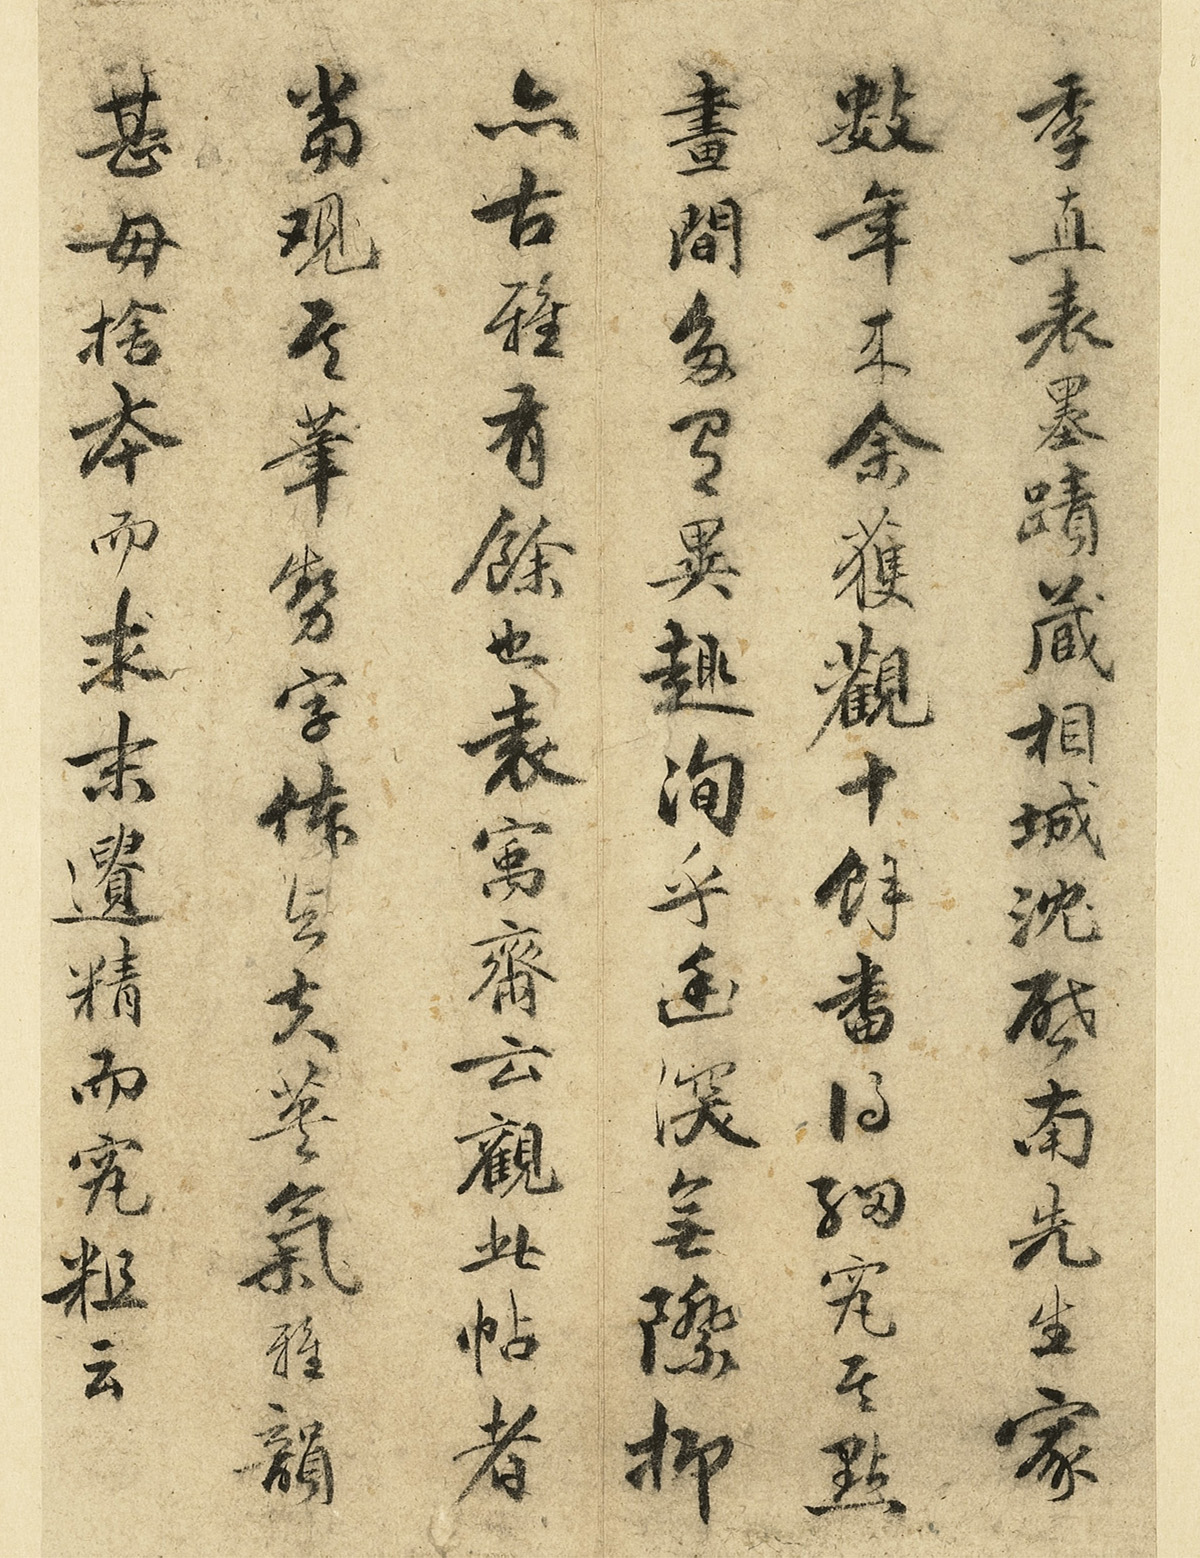 季直表墨蹟蔵相城沈啓南先生家
數年來余獲觀十餘番得細究其點
畫間多有異趣洵乎幽深無際抑
亦古雅有餘也袁寓齋云觀此帖者
當观其筆勢字体且夫英氣雅韻
甚毋捨本而求末遺精而究粗云